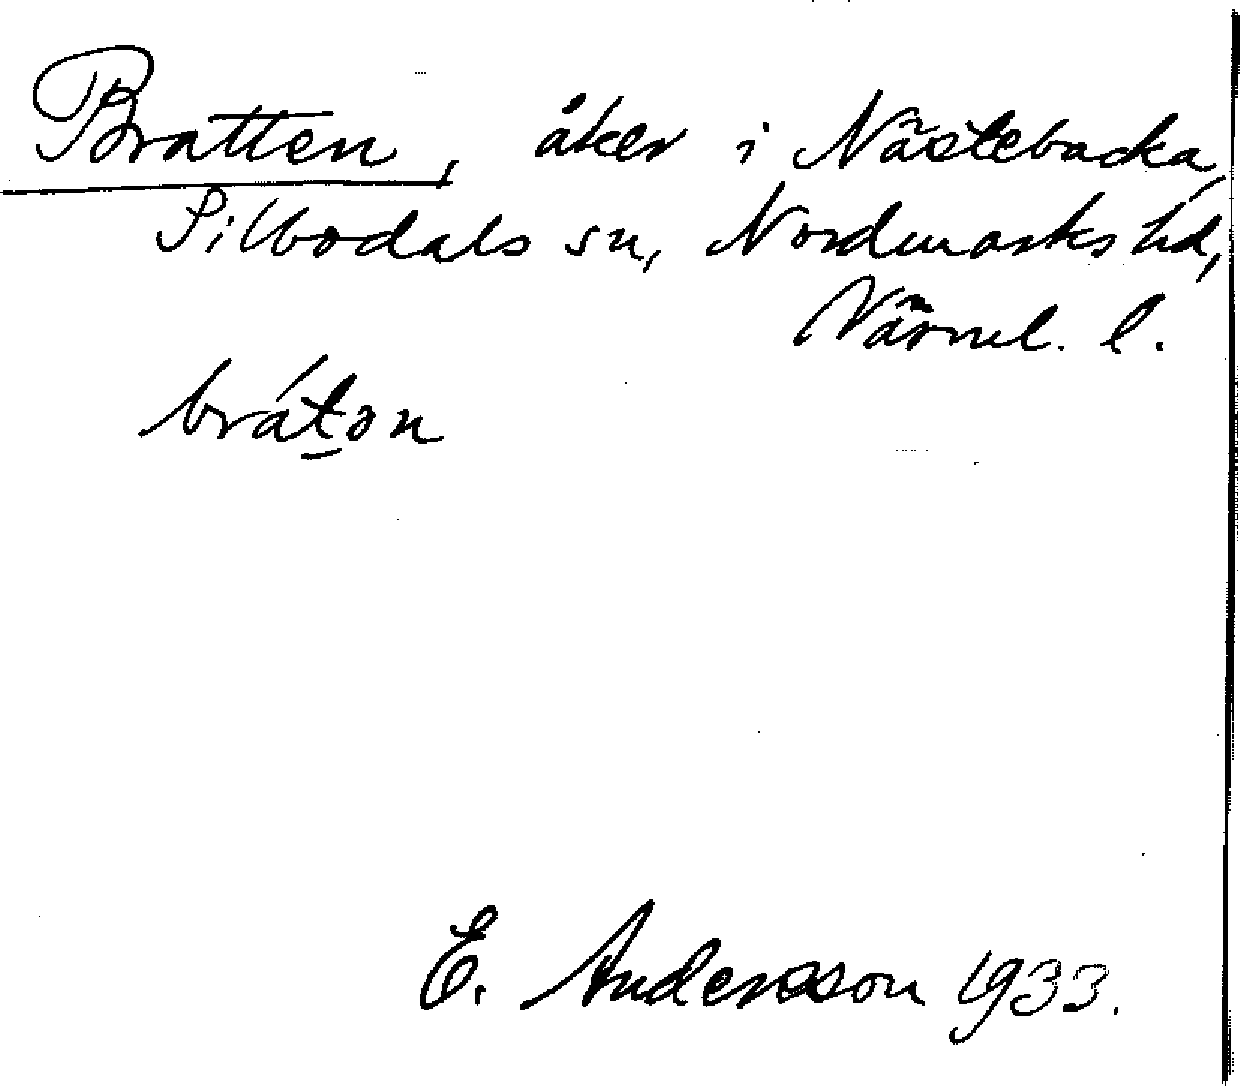 Bratten, åker i Nästebacka,
Silbodals sn, Nordmarks hd,
Värml. l.
brát̲ən
E. Andersson 1933.